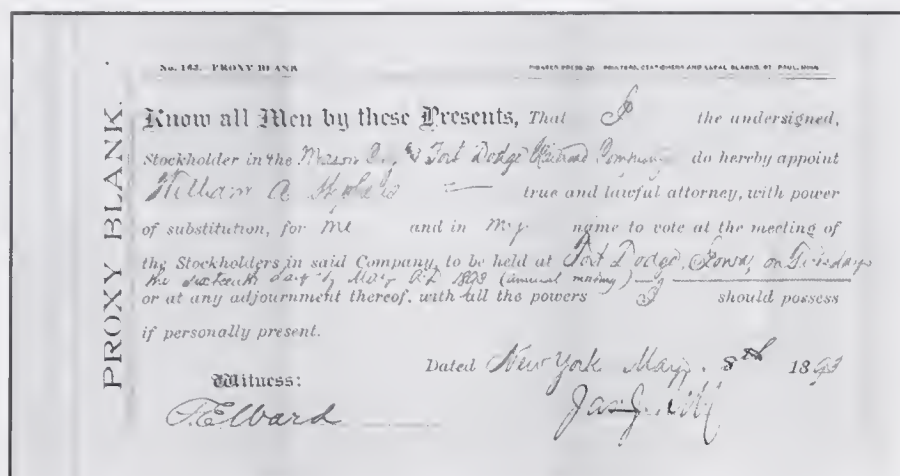 No. 163. PROXY BLANK PIONEER PRESS CO. PRINTERS, STATIONERS AND LEGAL BLANKS, ST. PAUL, MINN.
PROXY BLANK.
Know all Men by these Presents, That I the undersigned,
Stockholder in the Mason City & Fort Dodge Railroad Company do hereby appoint
William A. true and lawful attorney, with power
of substitution, for me and in my name to vote at the meeting of
the Stockholders in said Company, to be held at Fort Dodge, Iowa, on Tuesday
the sixteenth day of May A.D. 1893 (annual meeting)
or at any adjournment thereof, with all the powers I should possess
if personally present.
Dated New York May 8th 1893
Witness:
Jas J. Hill